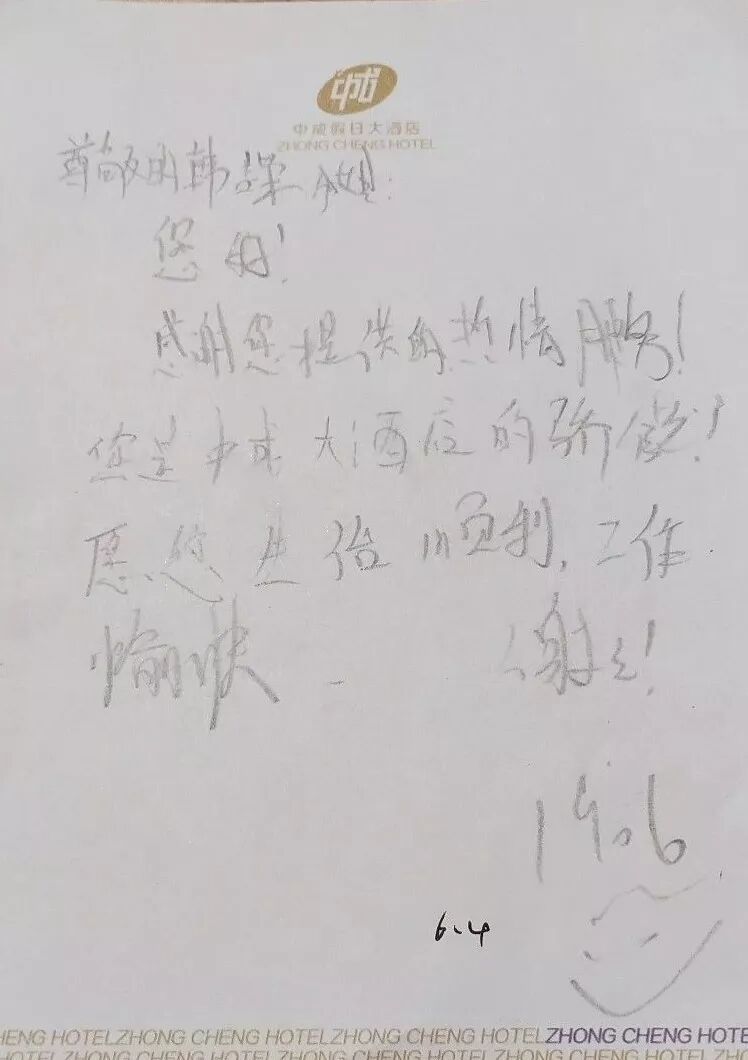 中成
中成假日大酒店
ZHONG CHENG HOTEL
尊敬的韩
您好!
感谢您提供的热情服务!
您是中成大酒店的骄傲!
愿您生活顺利,工作
愉快. 谢谢!
6.4
HENG HOTELZHONG CHENG HOTELZHONG CHENG HOTELZHONG CHENG HOTE
HOTELZHONG CHENG HOTELZHONG CHENG HOTELZHONG CHENG HOTEL